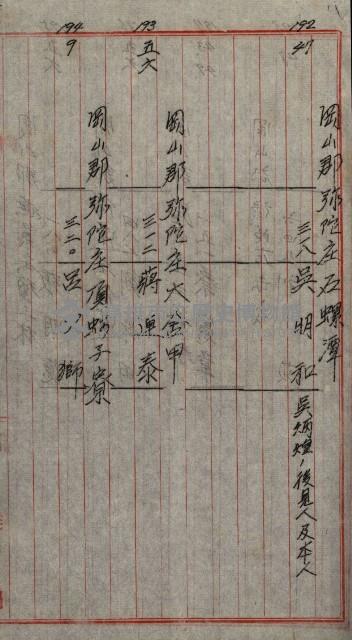 192
47
岡山郡弥陀庄石螺潭
三一八 吳明和 吳炳煌ノ後見人及本人
193
五六
岡山郡弥陀庄大舍甲
三二二 蔣連泰
194
9
岡山郡弥陀庄頂蚵子寮
三二〇 呂 獅